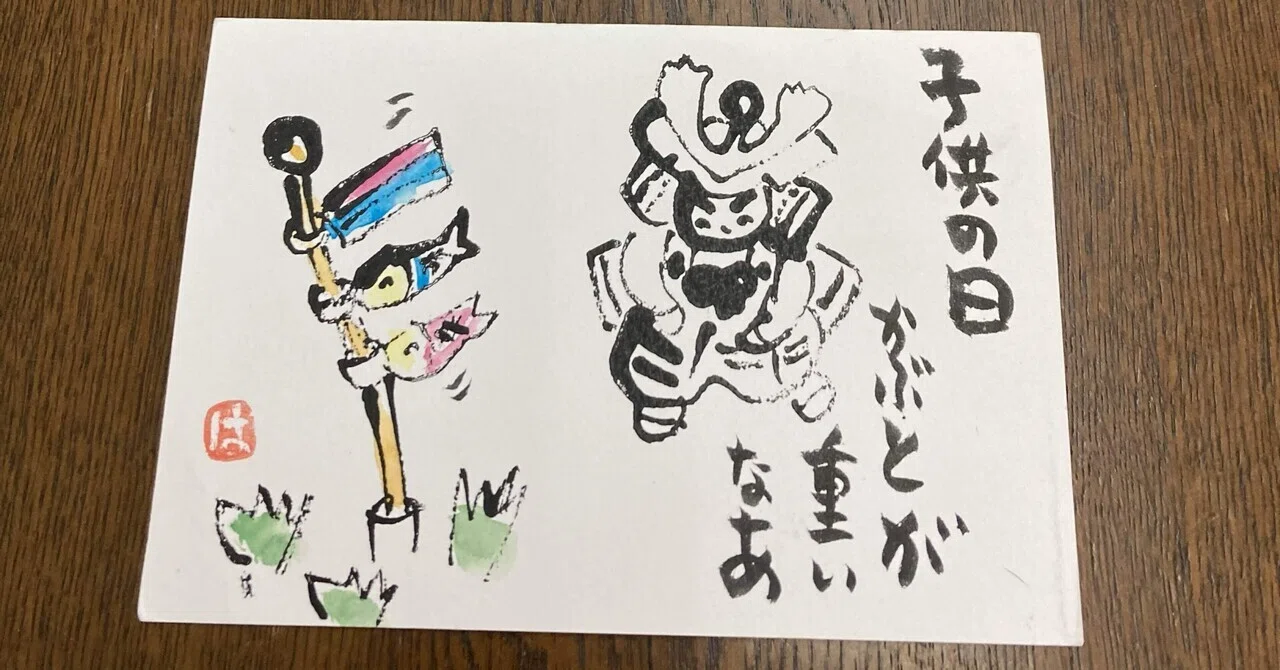 子供の日
かぶとが
重い
なあ
は